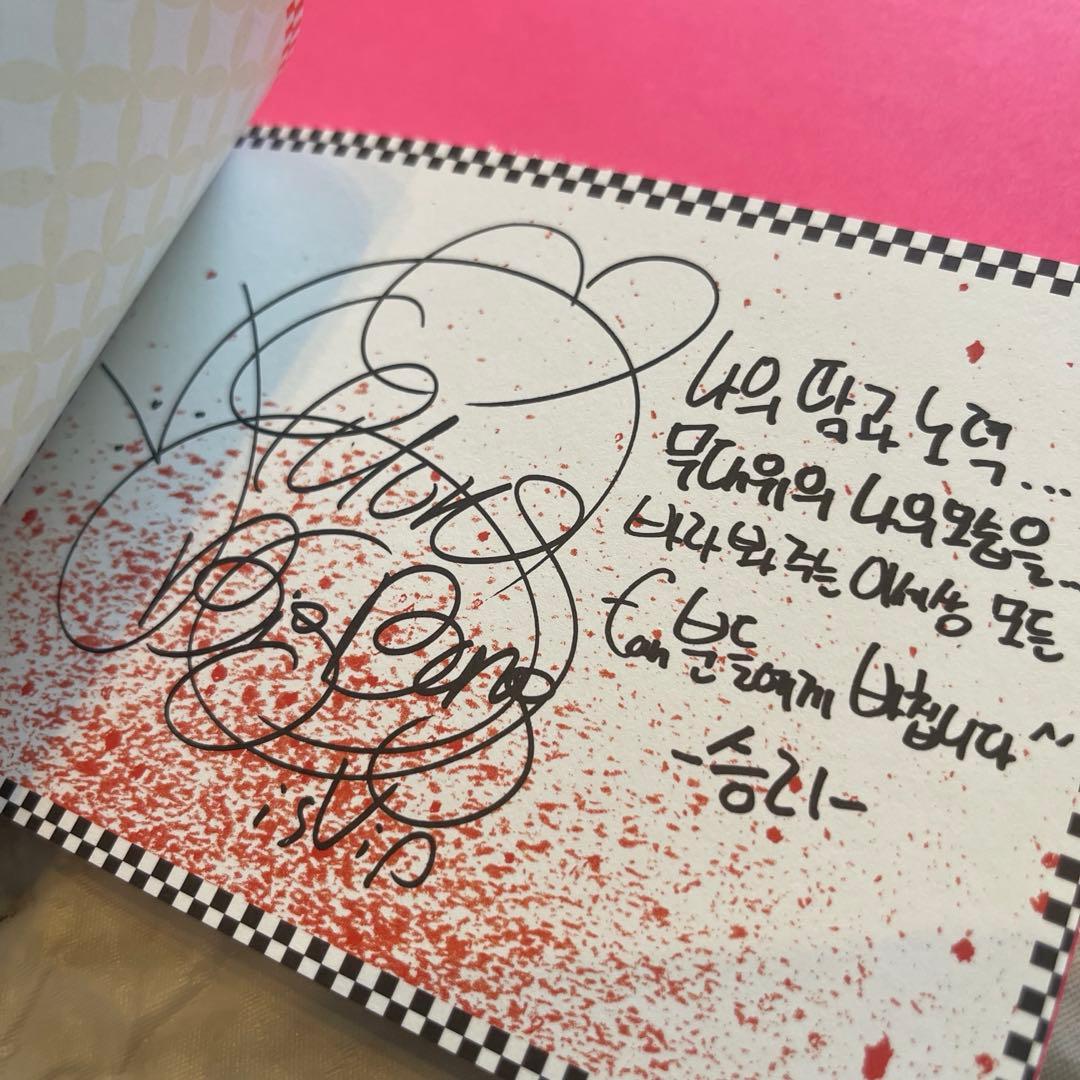 나의 땀과 노력...
무대위의 나의모습을...
바라봐 주는 이세상 모든
fan 분들에게 바칩니다^^
-승리-
is V.i.p